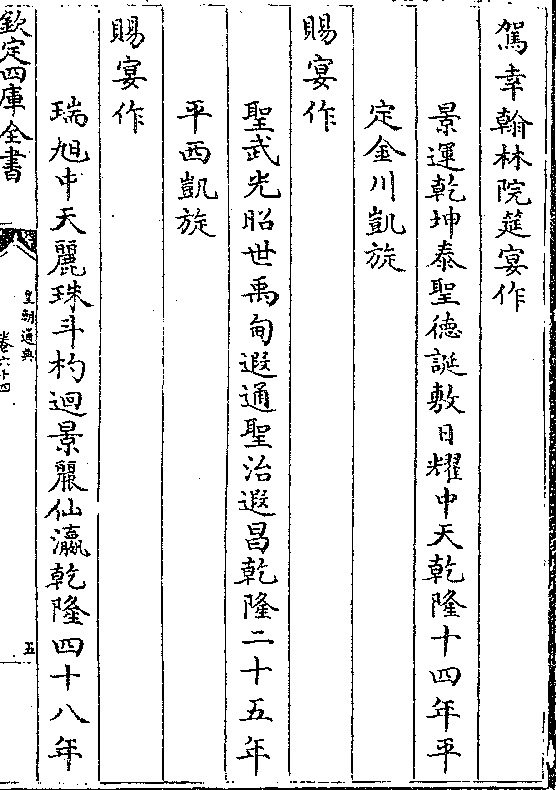 駕幸翰林院筵宴作
景運乾坤泰聖德誕敷日耀中天乾隆十四年平
定金川凱旋
賜宴作
聖武光昭世禹甸遐通聖治遐昌乾隆二十五年
平西凱旋
賜宴作
瑞旭中天麗珠斗杓迴景麗仙瀛乾隆四十八年
欽定四庫全書
皇朝通典
卷六十四
五